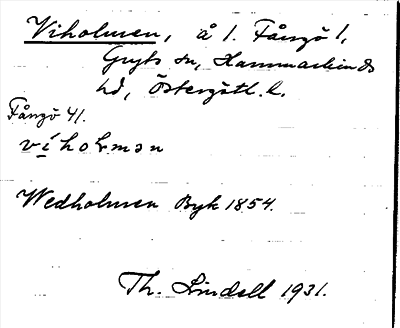 Viholmen, å 1. Fångö 1,
Gryts sn, Hammarkinds
hd, Östergötl. l.
Fångö 41.
víholmən
Wedholmen Byk 1854.
Th. Lindell 1931.